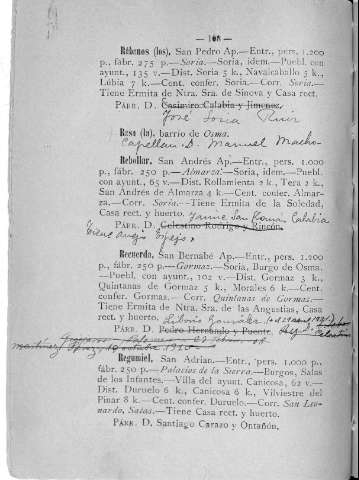 — 108 —
Rábanos (los), San Pedro Ap.—Entr., pers. 1.200
p., fábr. 275 p.—Soria.—Soria, idem.—Puebl. con
ayunt., 135 v.—Dist. Soria 5 k., Navalcaballo 5 k.,
Lubia 7 k.—Cent. confer. Soria.—Corr. Soria.—
Tiene Ermita de Ntra. Sra. de Sinova y Casa rect.
PÁRR. D. Casimiro Calabia y Jimenez.
José Soria
Rasa (la), barrio de Osma.
Capellan D. Manuel Macho
Rebollar, San Andrés Ap.—Entr., pers. 1.000
p., fábr. 250 p.—Almarza.—Soria, idem.—Puebl.
con ayunt., 65 v.—Dist. Rollamienta 2 k., Tera 2 k.,
San Andrés de Almarza 4 k.—Cent. confer. Almar-
za.—Corr. Soria.—Tiene Ermita de la Soledad,
Casa rect. y huerto. Calabia
PÁRR. D. Celestino Rodrigo y Rincón.
Tiene anejo Espejo
Recuerda, San Bernabé Ap.—Entr., pers. 1.200
p., fábr. 250 p.—Gormaz.—Soria, Burgo de Osma.
—Puebl. con ayunt., 102 v.—Dist. Gormaz 3 k.,
Quintanas de Gormaz 5 k., Morales 6 k.—Cent.
confer. Gormaz.—Corr. Quintanas de Gormaz.—
Tiene Ermita de Ntra. Sra. de las Angustias, Casa
rect. y huerto.
PÁRR. D. Pedro Hernando y Puente.
Regumiel, San Adrian.—Entr., pers. 1.000 p.,
fábr. 250 p.—Palacios de la Sierra.—Burgos, Salas
de los Infantes.—Villa del ayunt. Canicosa, 62 v.—
Dist. Duruelo 6 k., Canicosa 6 k., Vilviestre del
Pinar 8 k.—Cent. confer. Duruelo.—Corr. San Leo-
nardo, Salas.—Tiene Casa rect. y huerto.
PÁRR. D. Santiago Carazo y Ontañón.